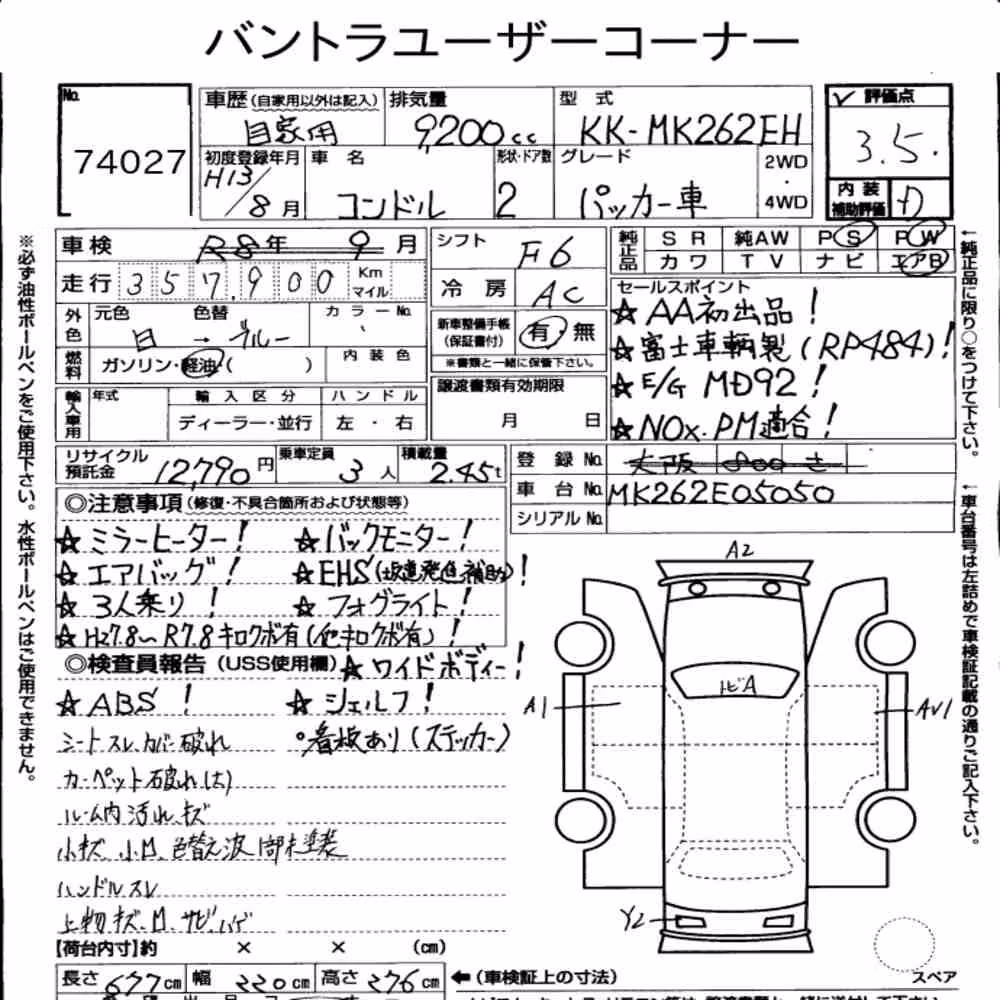 バントラユーザーコーナー
No.
74027
車歴(自家用以外は記入)
自家用
排気量
9200cc
型式
KK-MK262EH
評価点
3.5.
内装補助評価
D
初度登録年月
H13/8月
車名
コンドル
形状・ドア数
2
グレード
パッカー車
2WD
・
4WD
車検
R8年 9月
走行 357,900 Km マイル
外色
元色 色替 カラーNo.
白 → ブルー
燃料
ガソリン・軽油・( )
内装色
シフト
F6
冷房
AC
新車整備手帳(保証書付)
有・無
※書類と一緒に保管下さい。
純正品
SR 純AW PS PW
カワ TV ナビ エアB
セールスポイント
☆AA初出品!
☆富士車輌製(RP484)!
☆E/G MD92!
☆NOx・PM適合!
輸入車用
年式 輸入区分 ハンドル
ディーラー・並行 左・右
譲渡書類有効期限
月 日
リサイクル預託金 12,790円
乗車定員 3人
積載量 2.45t
登録No. 大阪 800 さ
車台No. MK262E05050
シリアルNo.
◎注意事項(修復・不具合箇所および状態等)
☆ミラーヒーター! ☆バックモニター!
☆エアバッグ! ☆EHS(坂道発進補助)!
☆3人乗り! ☆フォグライト!
☆H27.8〜R7.8キロクボ有(他キロクボ有)!
◎検査員報告(USS使用欄) ☆ワイドボディー!
☆ABS! ☆シェルフ!
シートスレ、カバー破れ °看板あり(ステッカー)
カーペット破れ(大)
ルーム内汚れ、キズ
小キズ、小凹、色替え波 部未塗装
ハンドルスレ
上物キズ、凹、サビ、ハゲ
【荷台内寸】約 × × (cm)
長さ677cm 幅220cm 高さ276cm ←(車検証上の寸法)
A2
トビA
A1
AV1
Y2
スペア
※必ず油性ボールペンをご使用下さい。水性ボールペンはご使用できません。
←純正品に限り○をつけて下さい。
←車台番号は左詰めで車検証記載の通りご記入下さい。